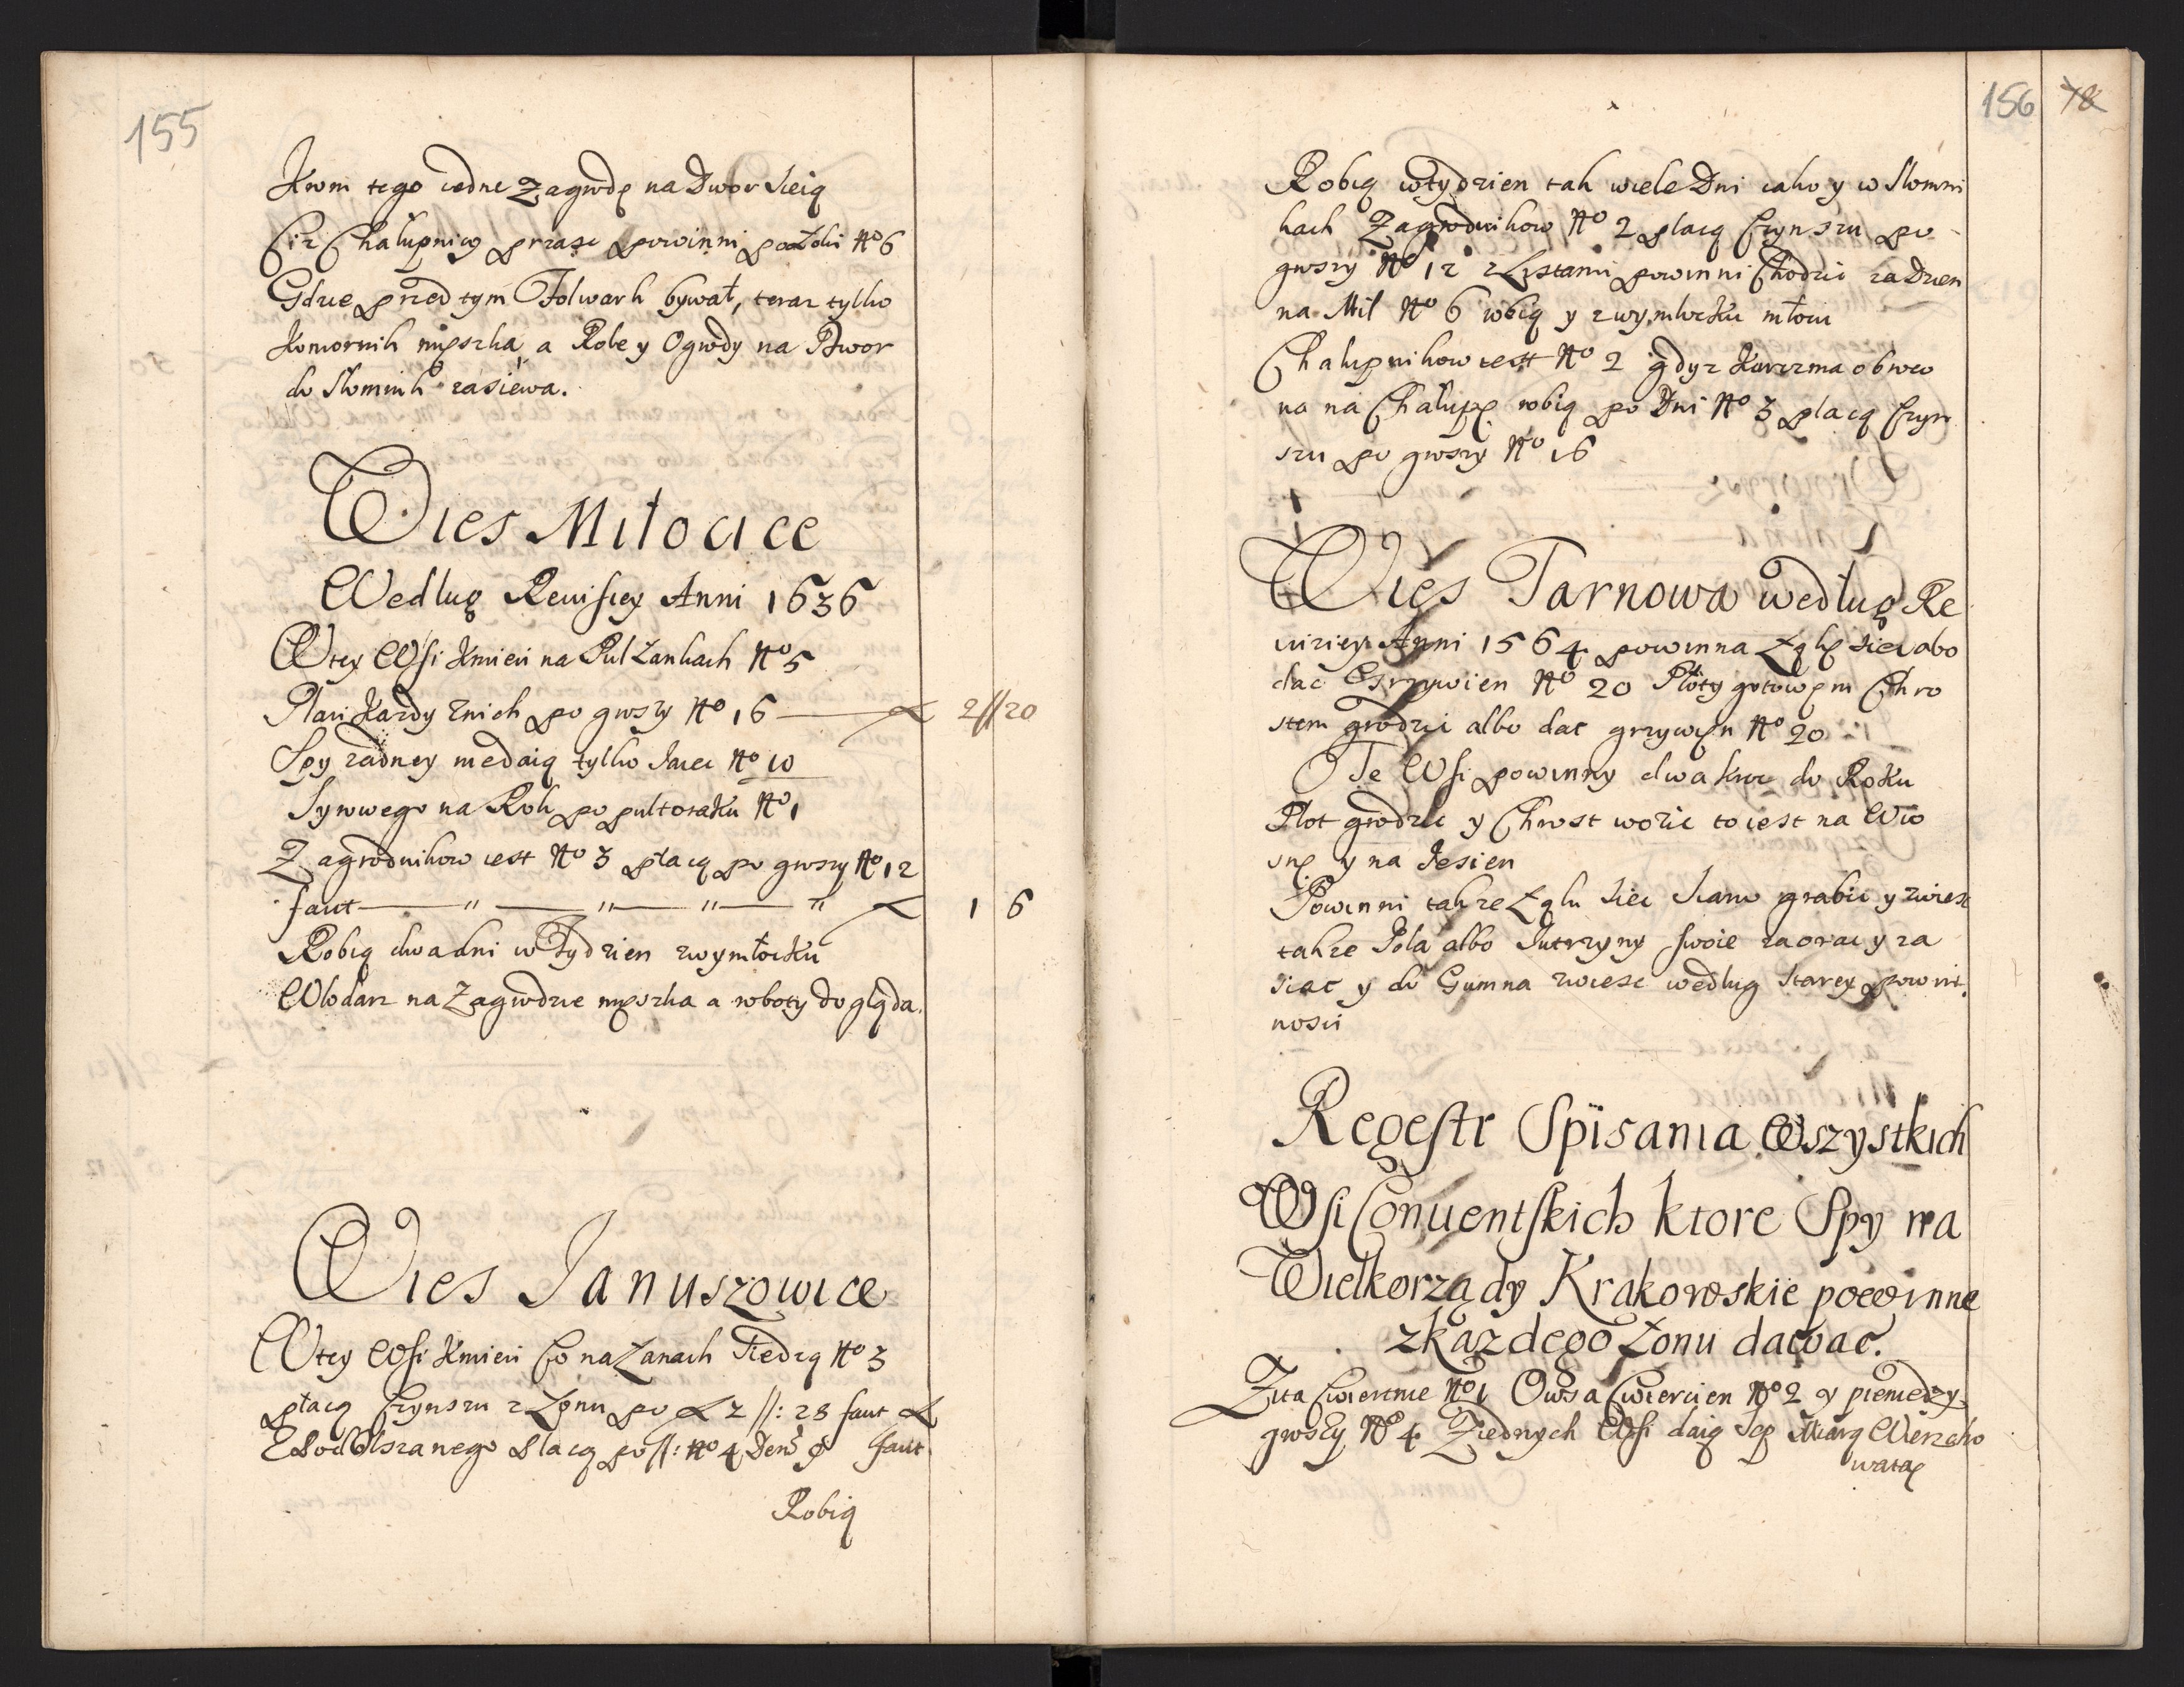 155
Krom tego iedne Zagrodę na Dwor Sieią
Ciz Chałupnicy prząsc powinni po Łokci No 6
Gdzie przed tym Folwark bywał, teraz tylko
Komornik mięszka, a Role y Ogrody na Dwor
do Słomnik zasiewa.
Wies Miłocice
Wedlug Reuisiey Anni 1636
W tey Wsi Kmieci na Pul Łankach No 5
Płaci Kazdy z nich po groszy No 16 2//20
Spy zadney niedaią tylko Jaiec No 10
Syrowego na Rok po pułtoraku No 1
Zagrodnikow iest No 3 płacą po groszy No 12
faut " " " " 1 6
Robią dwa dni w Tydzien z wymłocku
Włodarz na Zagrodzie mięszka a roboty dogląda.
Wies Januszowice
W tey Wsi Kmieci Co na Łanach Siedzą No 3
płacą Czynszu z Łonu po 2 //: 28 faut
Płacą po //: No 4 Den 9 faut
Robią
156 78
Robią w tydzien tak wiele Dni iako y w Słomni
kach Zagrodnikow No 2 płacą Czynszu po
groszy No 12 z Lystami powinni Chodzic za Dzien
na Mil No 6 robią y z wymlocku młoci
Chalupnikow iest No 2 gdyz Karczma obroco
na na Chałupę robią po Dni No 3 płacą Czyn
szu po groszy No 16
Wies Tarnowa według Re
uiziey Anni 1564 powinna Łąkę Siec abo
dac Grzywien No 20 Płoty gotowem Chro
stem grodzic albo dac grzywęn No 20
Te Wsi powinny dwa kroc do Roku
Płot grodzic y Chrost wozic to iest na Wio
snę y na Jesien
Powinni takze Łąki Siec Siano grabic y zwiesc
takze Pola albo Jutrzyny swoie zaorac y za
siac y do Gumna zwiesc według starey powin
nosci
Regestr Spisania Wszystkich
Wsi Conuentskich ktore Spy na
Wielkorządy Krakowskie powinne
z kazdego Łonu dawac.
Zita Cwiertnie No 1 Owsa Cwiercien No 2 y pieniedzy
groszy No 4 Z iednych Wsi daią Sep Miarą Wierzcho
watą